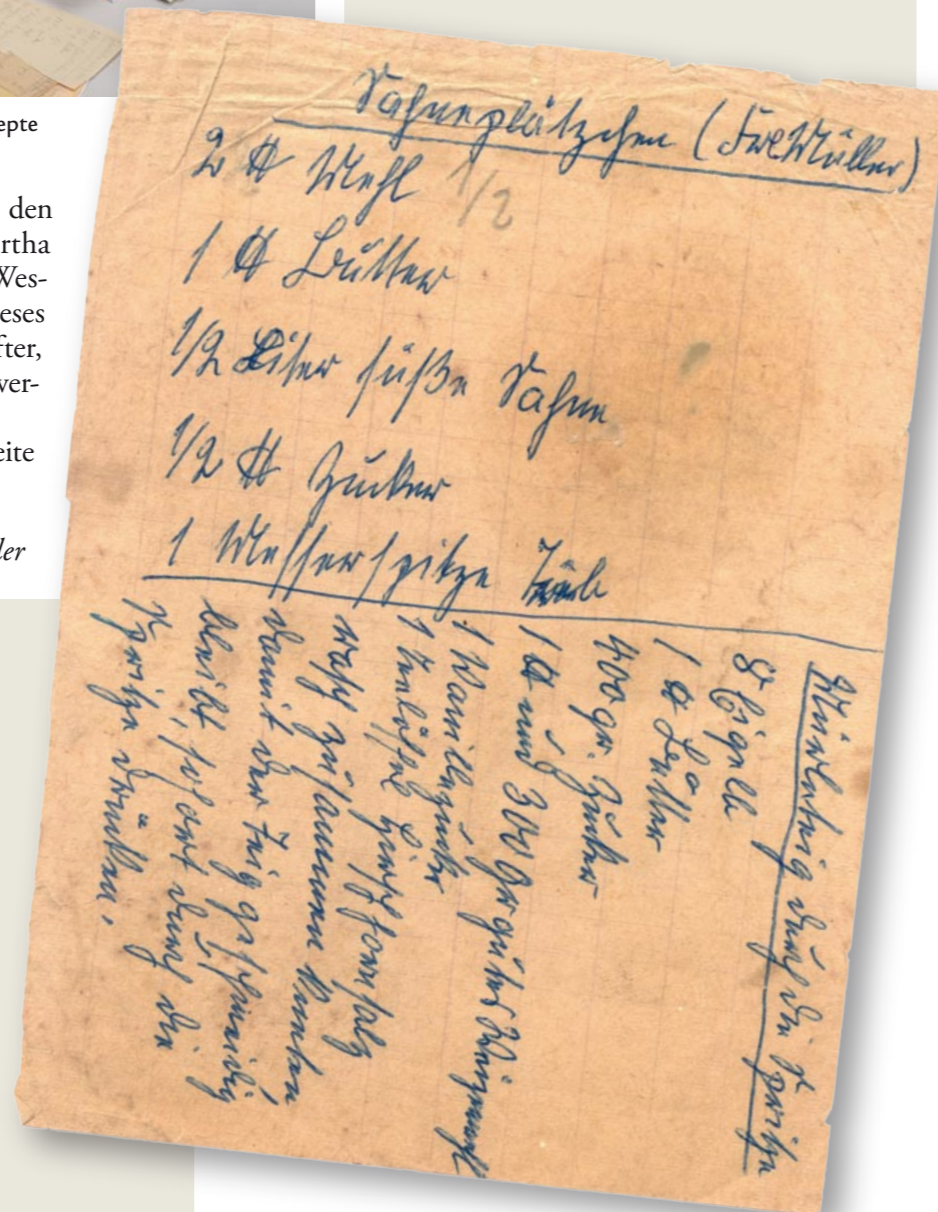 epte
den
rtha
Wes-
ieses
fter,
ver-
eite
ler
Sahneplätzchen (Frl Müller)
2 ℔ Mehl 1/2
1 ℔ Butter
1/2 Liter süße Sahne
1/2 ℔ Zucker
1 Messerspitze
Mürbteig durch die Spritze
8 Eigelb
1 ℔ Butter
400 gr. Zucker
1 ℔ und 300 gr gutes Weizenmehl
1 Vanillezucker
1 Teelöffel Hirschhornsalz
rasch zusammen kneten
damit der Teig geschmeidig
bleibt, sofort durch die
Spritze drücken.